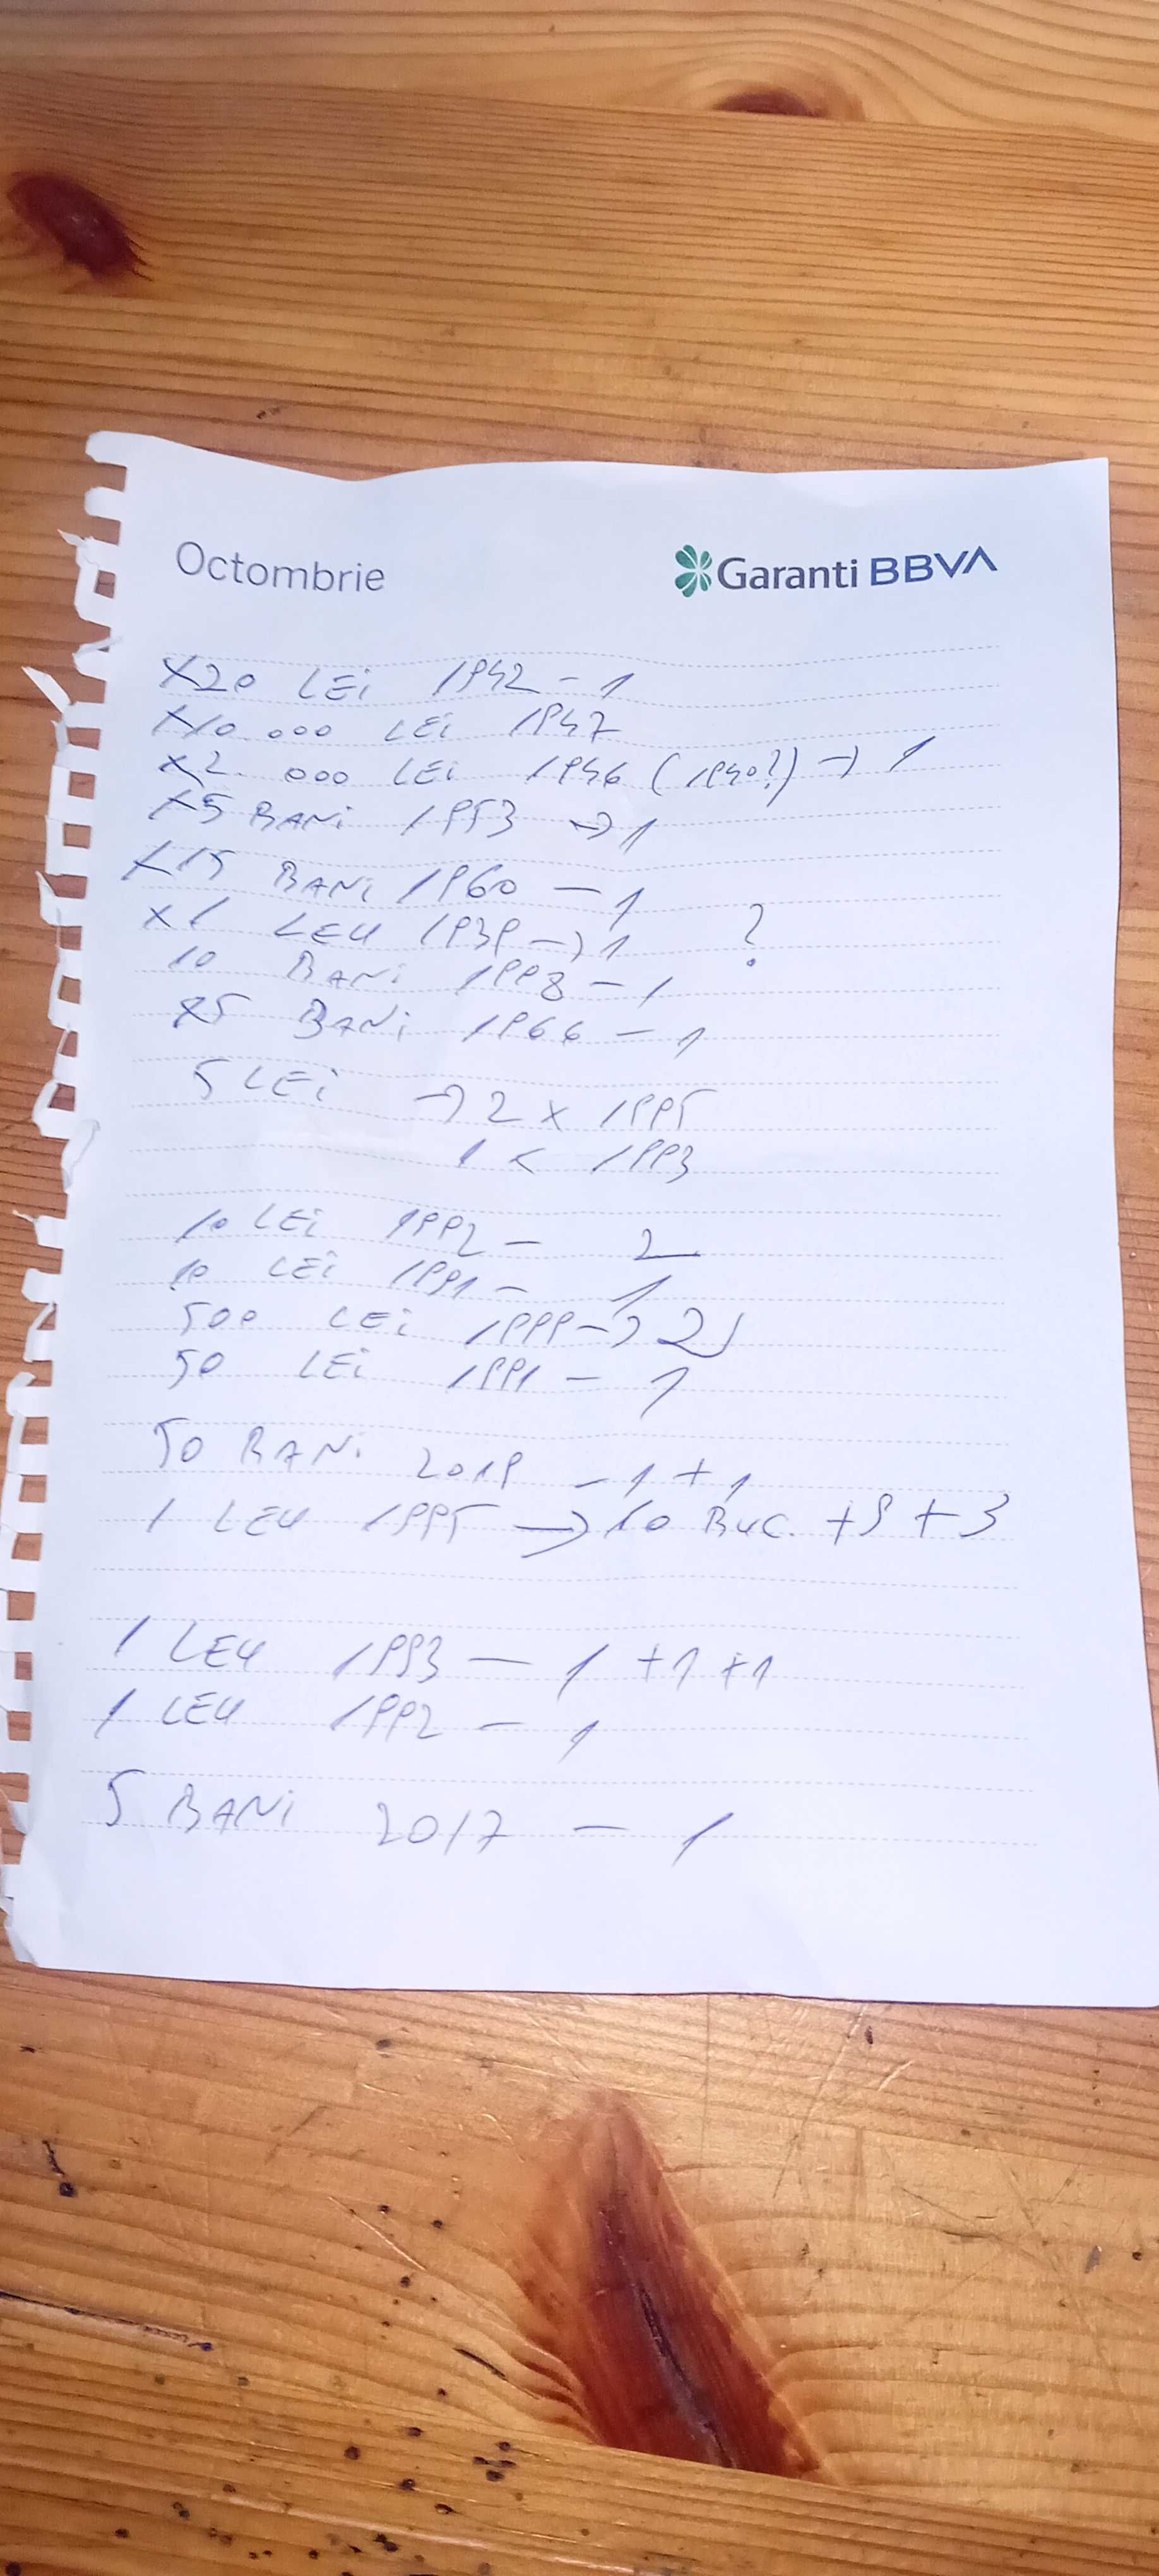 Octombrie
Garanti BBVA
x20 LEi 1942 - 1
x10 000 LEi 1947
x2 000 LEi 1946 (1940?) → 1
x5 BANi 1953 → 1
x15 BANi 1960 - 1
x1 LEU 1939 → 1 ?
10 BANi 1998 - 1
x5 BANi 1966 - 1
5 LEi → 2 x 1995
1 x 1993
10 LEi 1992 - 2
10 LEi 1991 - 1
500 LEi 1999 → 2
50 LEi 1991 - 1
50 BANi 2019 - 1 + 1
1 LEU 1995 → 10 BUC. + 9 + 3
1 LEU 1993 - 1 + 1 + 1
1 LEU 1992 - 1
5 BANi 2017 - 1